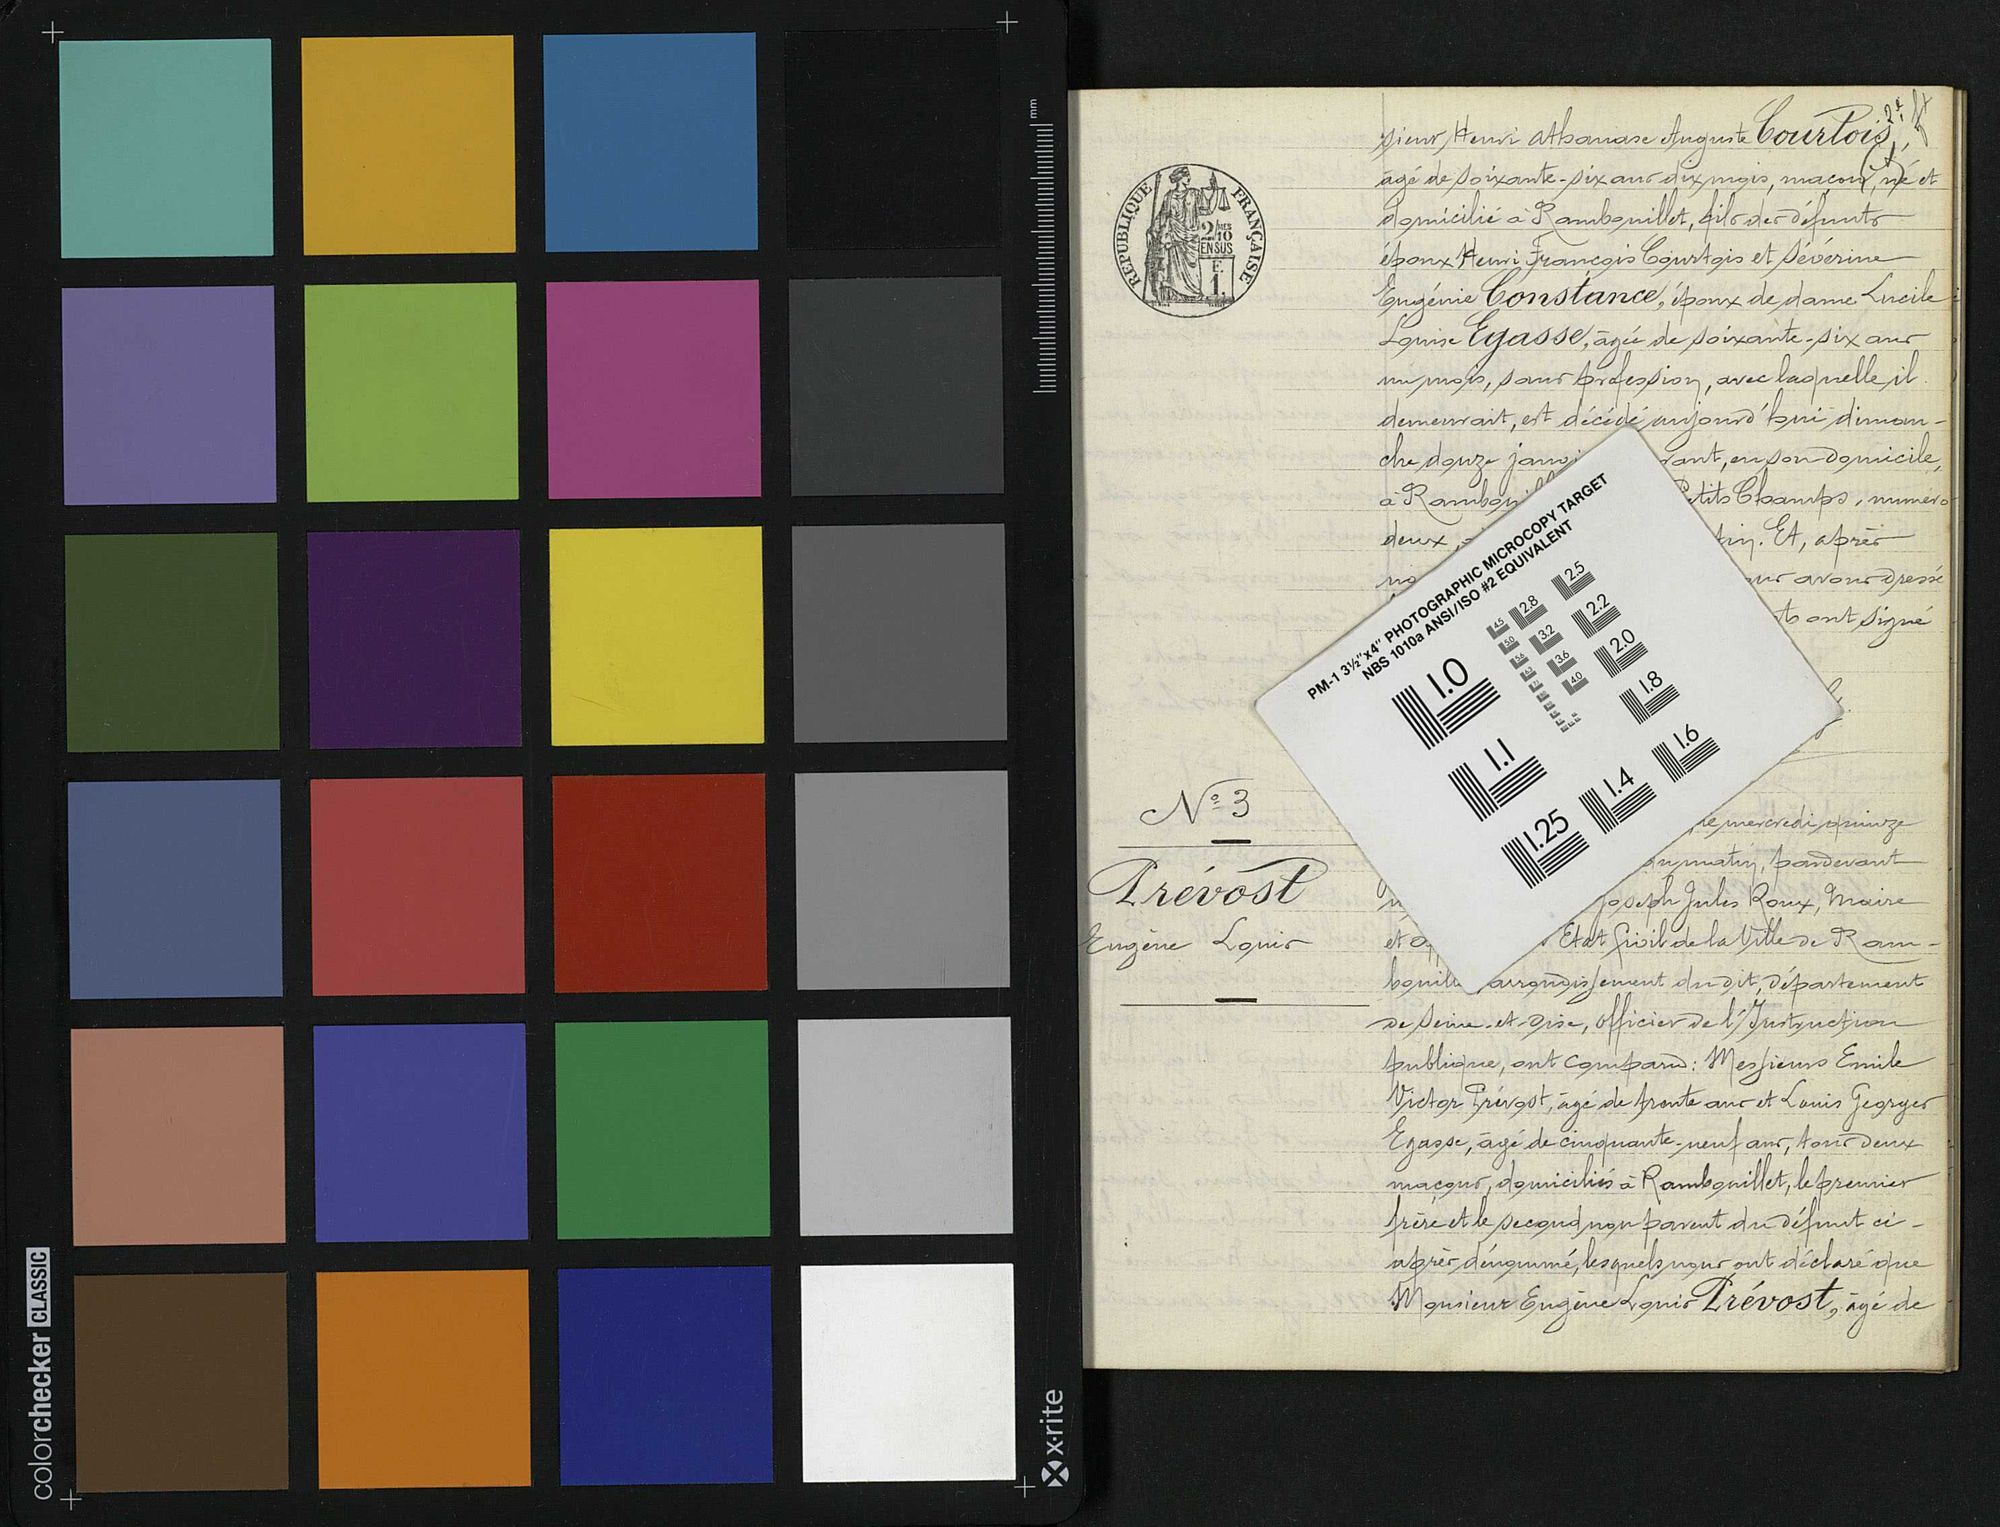 colorchecker CLASSIC
x·rite
mm
REPUBLIQUE FRANÇAISE
2/10
EN SUS
F.
1.
2e ft
sieur, Henri Athanase Auguste Courtois,
âgé de soixante-six ans dix mois, maçon, né et
domicilié à Rambouillet, fils des défunts
époux Henri François Courtois et Sévérine
Eugénie Constance, époux de dame Lucile
Louise Egasse, âgée de soixante-six ans
un mois, sans profession, avec laquelle il
demeurait, est décédé aujourd'hui diman-
che douze janvi rant, en son domicile,
à Rambouill Petits Champs, numéro
deux, tin. Et, après
avons dressé
ont signé
PM-1 3½"x4" PHOTOGRAPHIC MICROCOPY TARGET
NBS 1010a ANSI/ISO #2 EQUIVALENT
1.0
1.1
1.25
1.4
1.6
1.8
2.0
2.2
2.5
2.8
3.2
3.6
4.0
4.5
5.0
5.6
No 3
Prévost
Eugène Louis
le mercredi quinze
du matin, pardevant
Joseph Jules Roux, Maire
et Etat Civil de la Ville de Ram-
bouill arrondissement du dit, département
de Seine-et-Oise, officier de l'Instruction
publique, ont comparu: Messieurs Emile
Victor Prévost, âgé de trente ans et Louis Georges
Egasse, âgé de cinquante-neuf ans, tous deux
maçons, domiciliés à Rambouillet, le premier
frère et le second non parent du défunt ci-
après dénommé, lesquels nous ont déclaré que
Monsieur Eugène Louis Prévost, âgé de